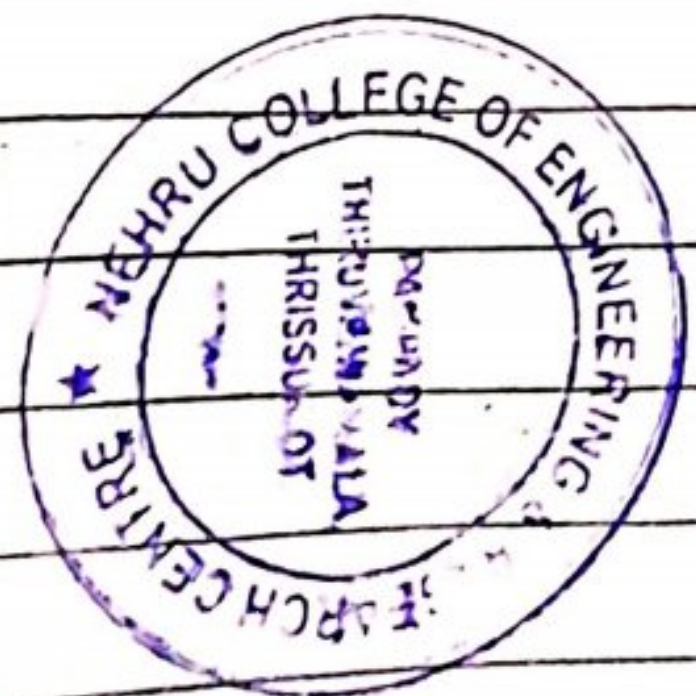 ★ NEHRU COLLEGE OF ENGINEERING
RESEARCH CENTRE
THIRUVILWAMALA
THRISSUR DT